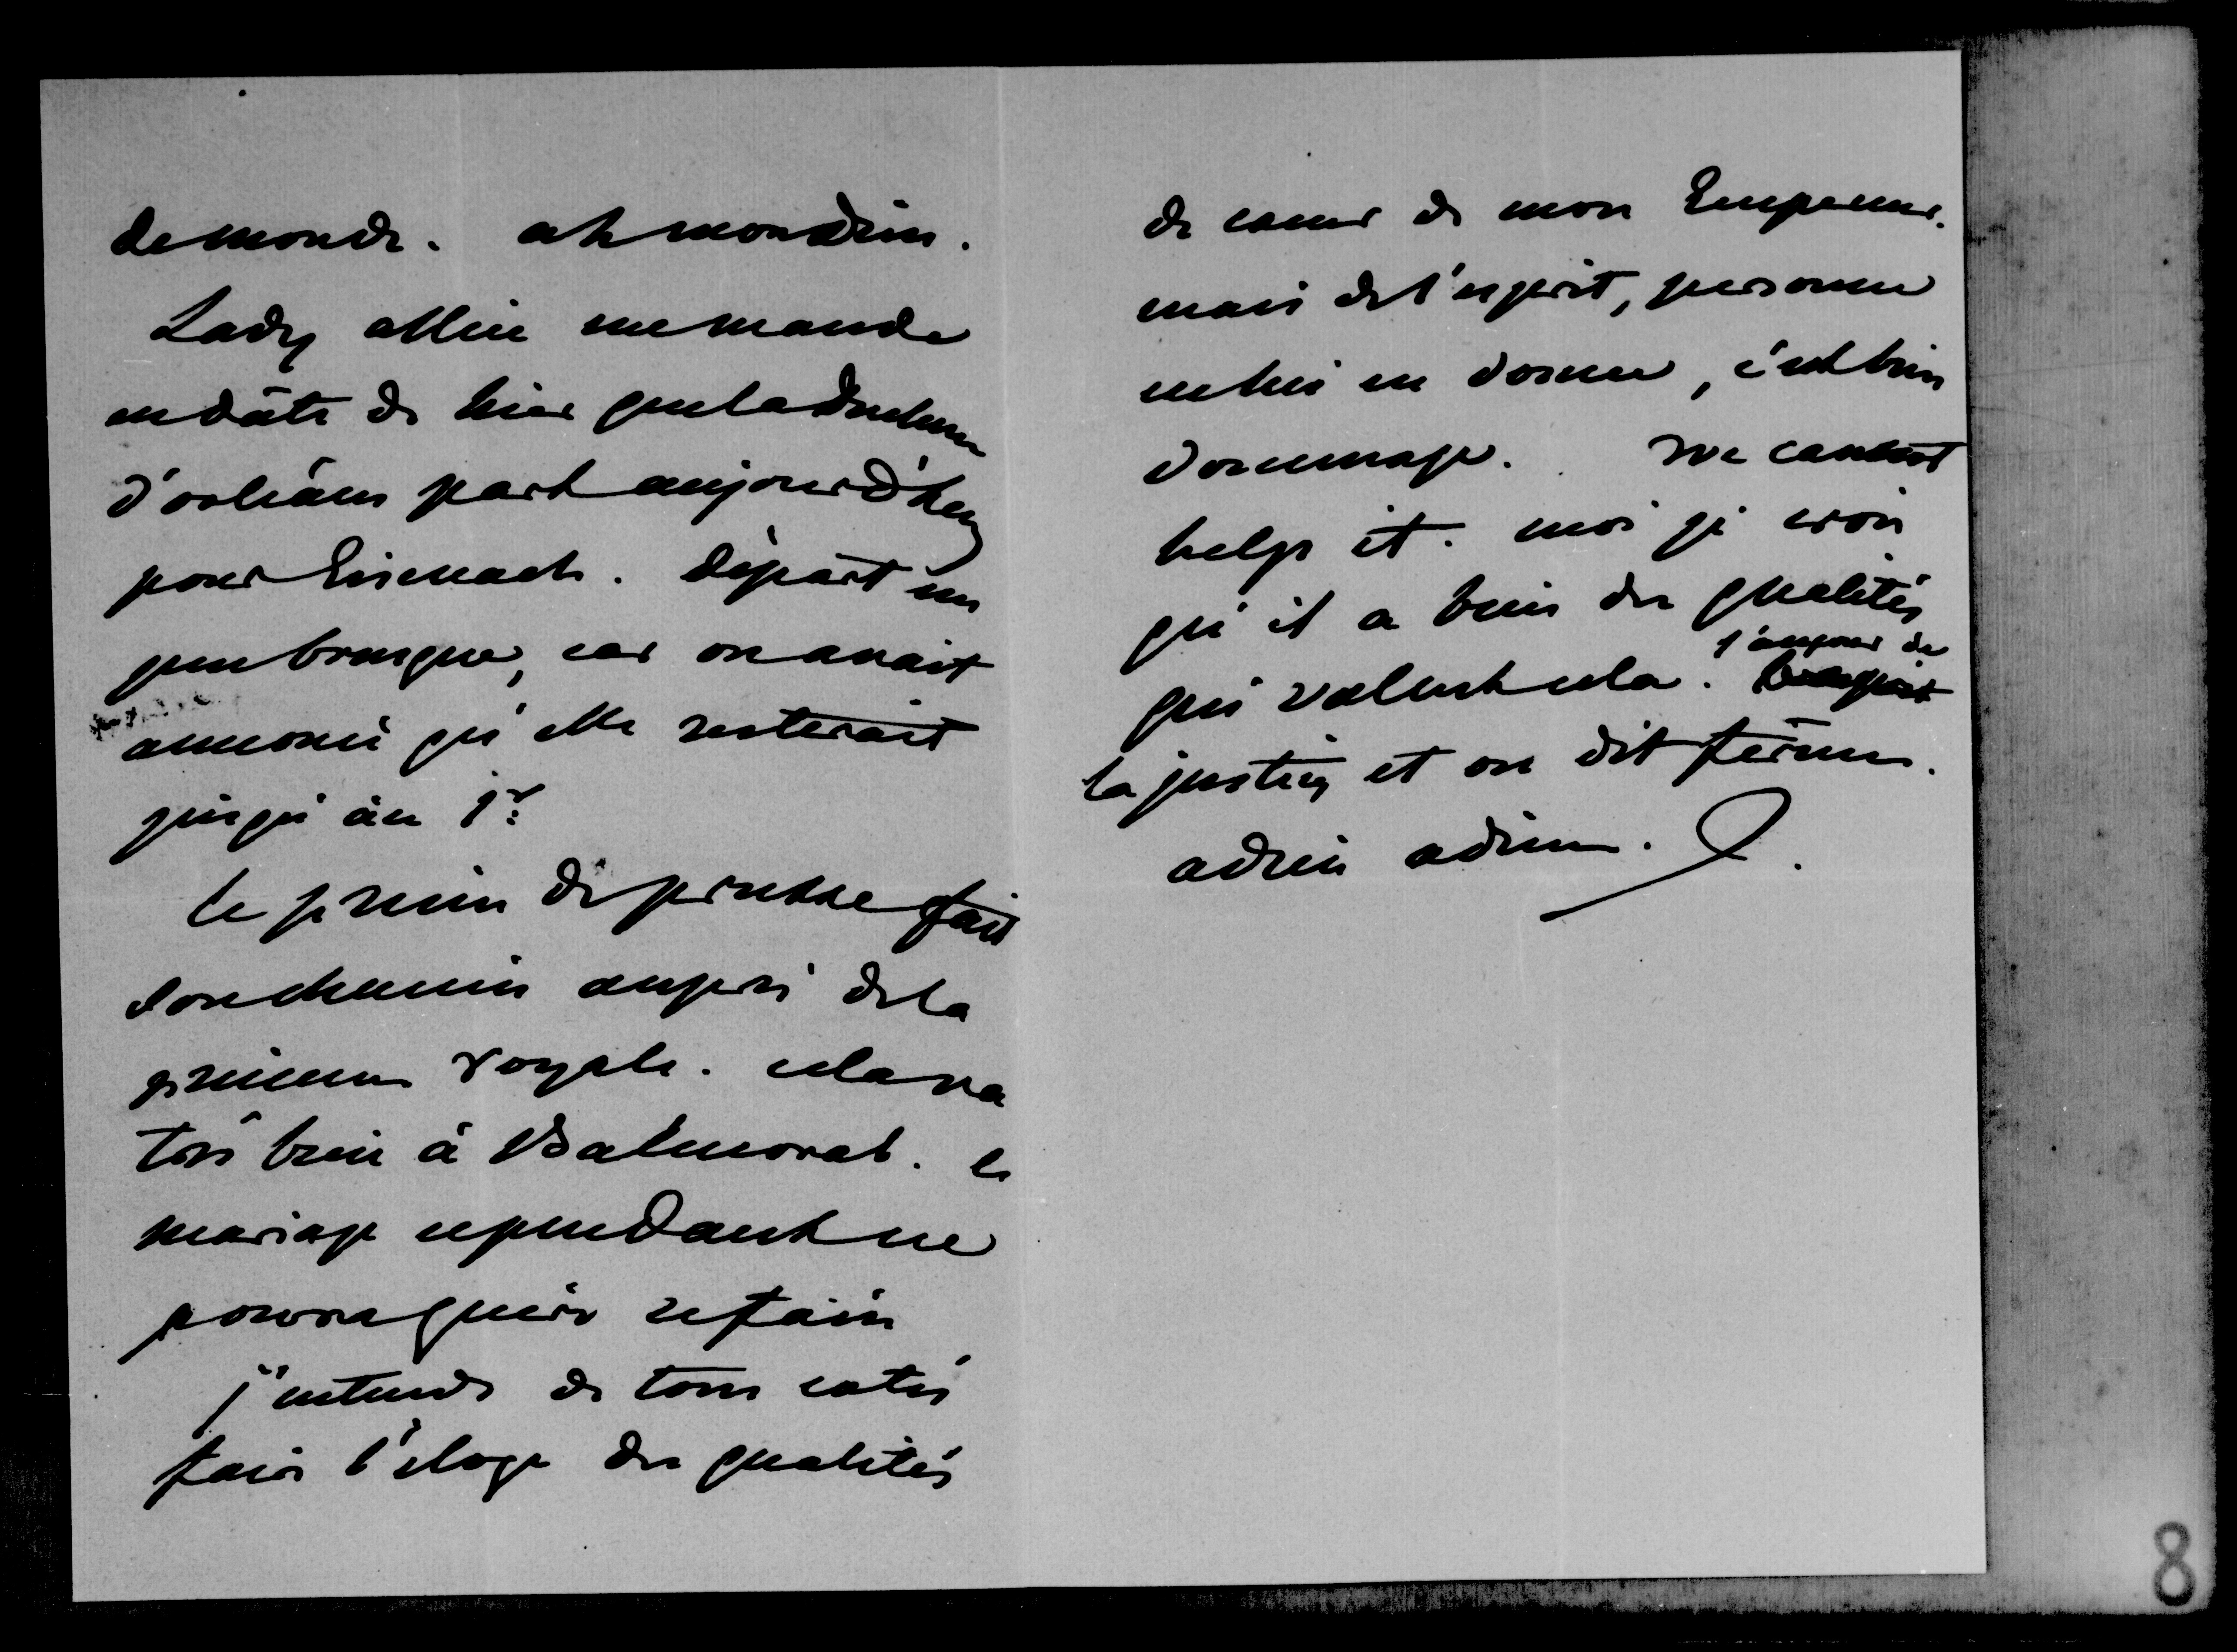 de monde. ah mon Dieu.
Lady Allice me mande
en date de hier que la Duchesse
d'orléans part aujourd'huy
pour Eisenach. Départ un
peu brusque, car on avait
annoncé qu'elle resterait
jusqu'au 1r
le prince de prusse fait
son chemin auprès de la
princesse royale. cela va
très bien à Balmoral. le
mariage cependant ne
pourra guère se faire
j'entends de tous cotés
faire l'éloge des qualités
de coeur de mon Empereur.
mais de l'esprit, personne
ne lui en donne, c'est bien
dommage. We cannot
help it. moi je crois
qu'il a bien des qualités
qui valent cela. l'amour de
la justice et on dit ferme.
adieu adieu.
8